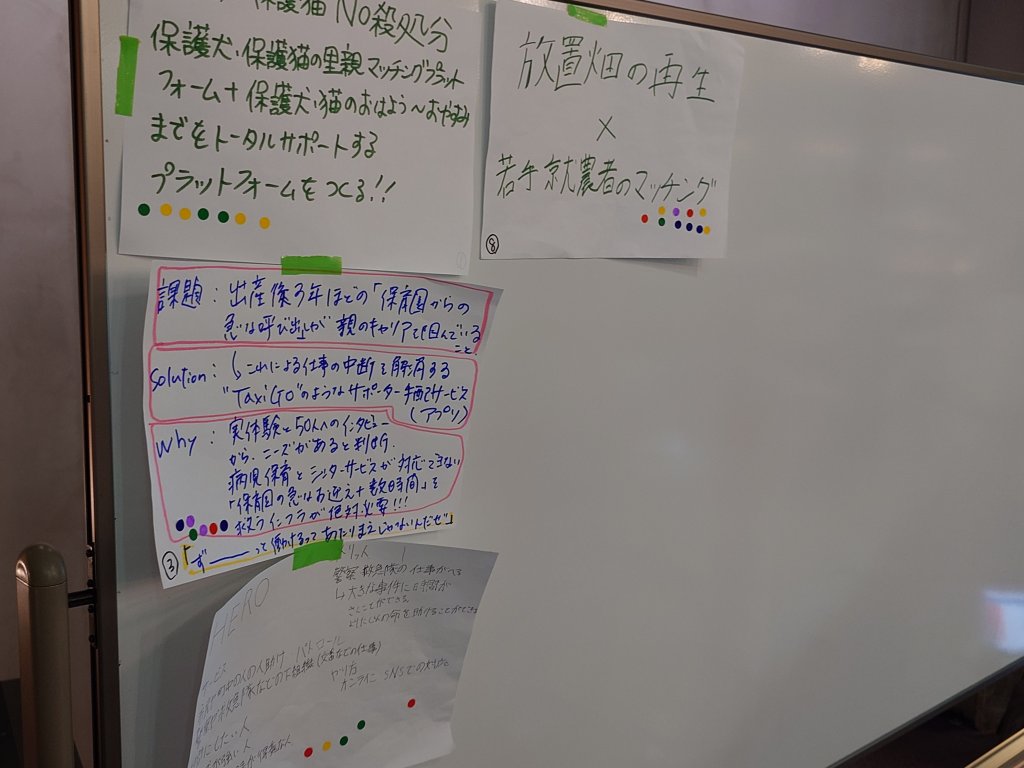 保護猫 No殺処分
保護犬・保護猫の里親マッチングプラット
フォーム+保護犬・猫のおはよう〜おやすみ
までをトータルサポートする
プラットフォームをつくる!!
放置畑の再生
×
若手就農者のマッチング
⑧
課題: 出産後3年ほどの「保育園からの
急な呼び出し」が親のキャリアを阻んでいる
こと
Solution: これによる仕事の中断を解消する
"Taxi GO"のようなサポーター手配サービス
(アプリ)
Why: 実体験と50人へのインタビュー
から、ニーズがあると判断。
病児保育とシッターサービスが対応できない
「保育園の急なお迎え+数時間」を
救うインフラが絶対必要!!!
③「ず――っと働けるってあたりまえじゃないんだぜ」
HERO
警察 救急隊の仕事がへる
↳大きな事件に時間が
さくことができる
よりたくさんの命を助けることができる
町の人の人助け パトロール
(交番などの仕事)
やり方
オンライン SNSでの対応